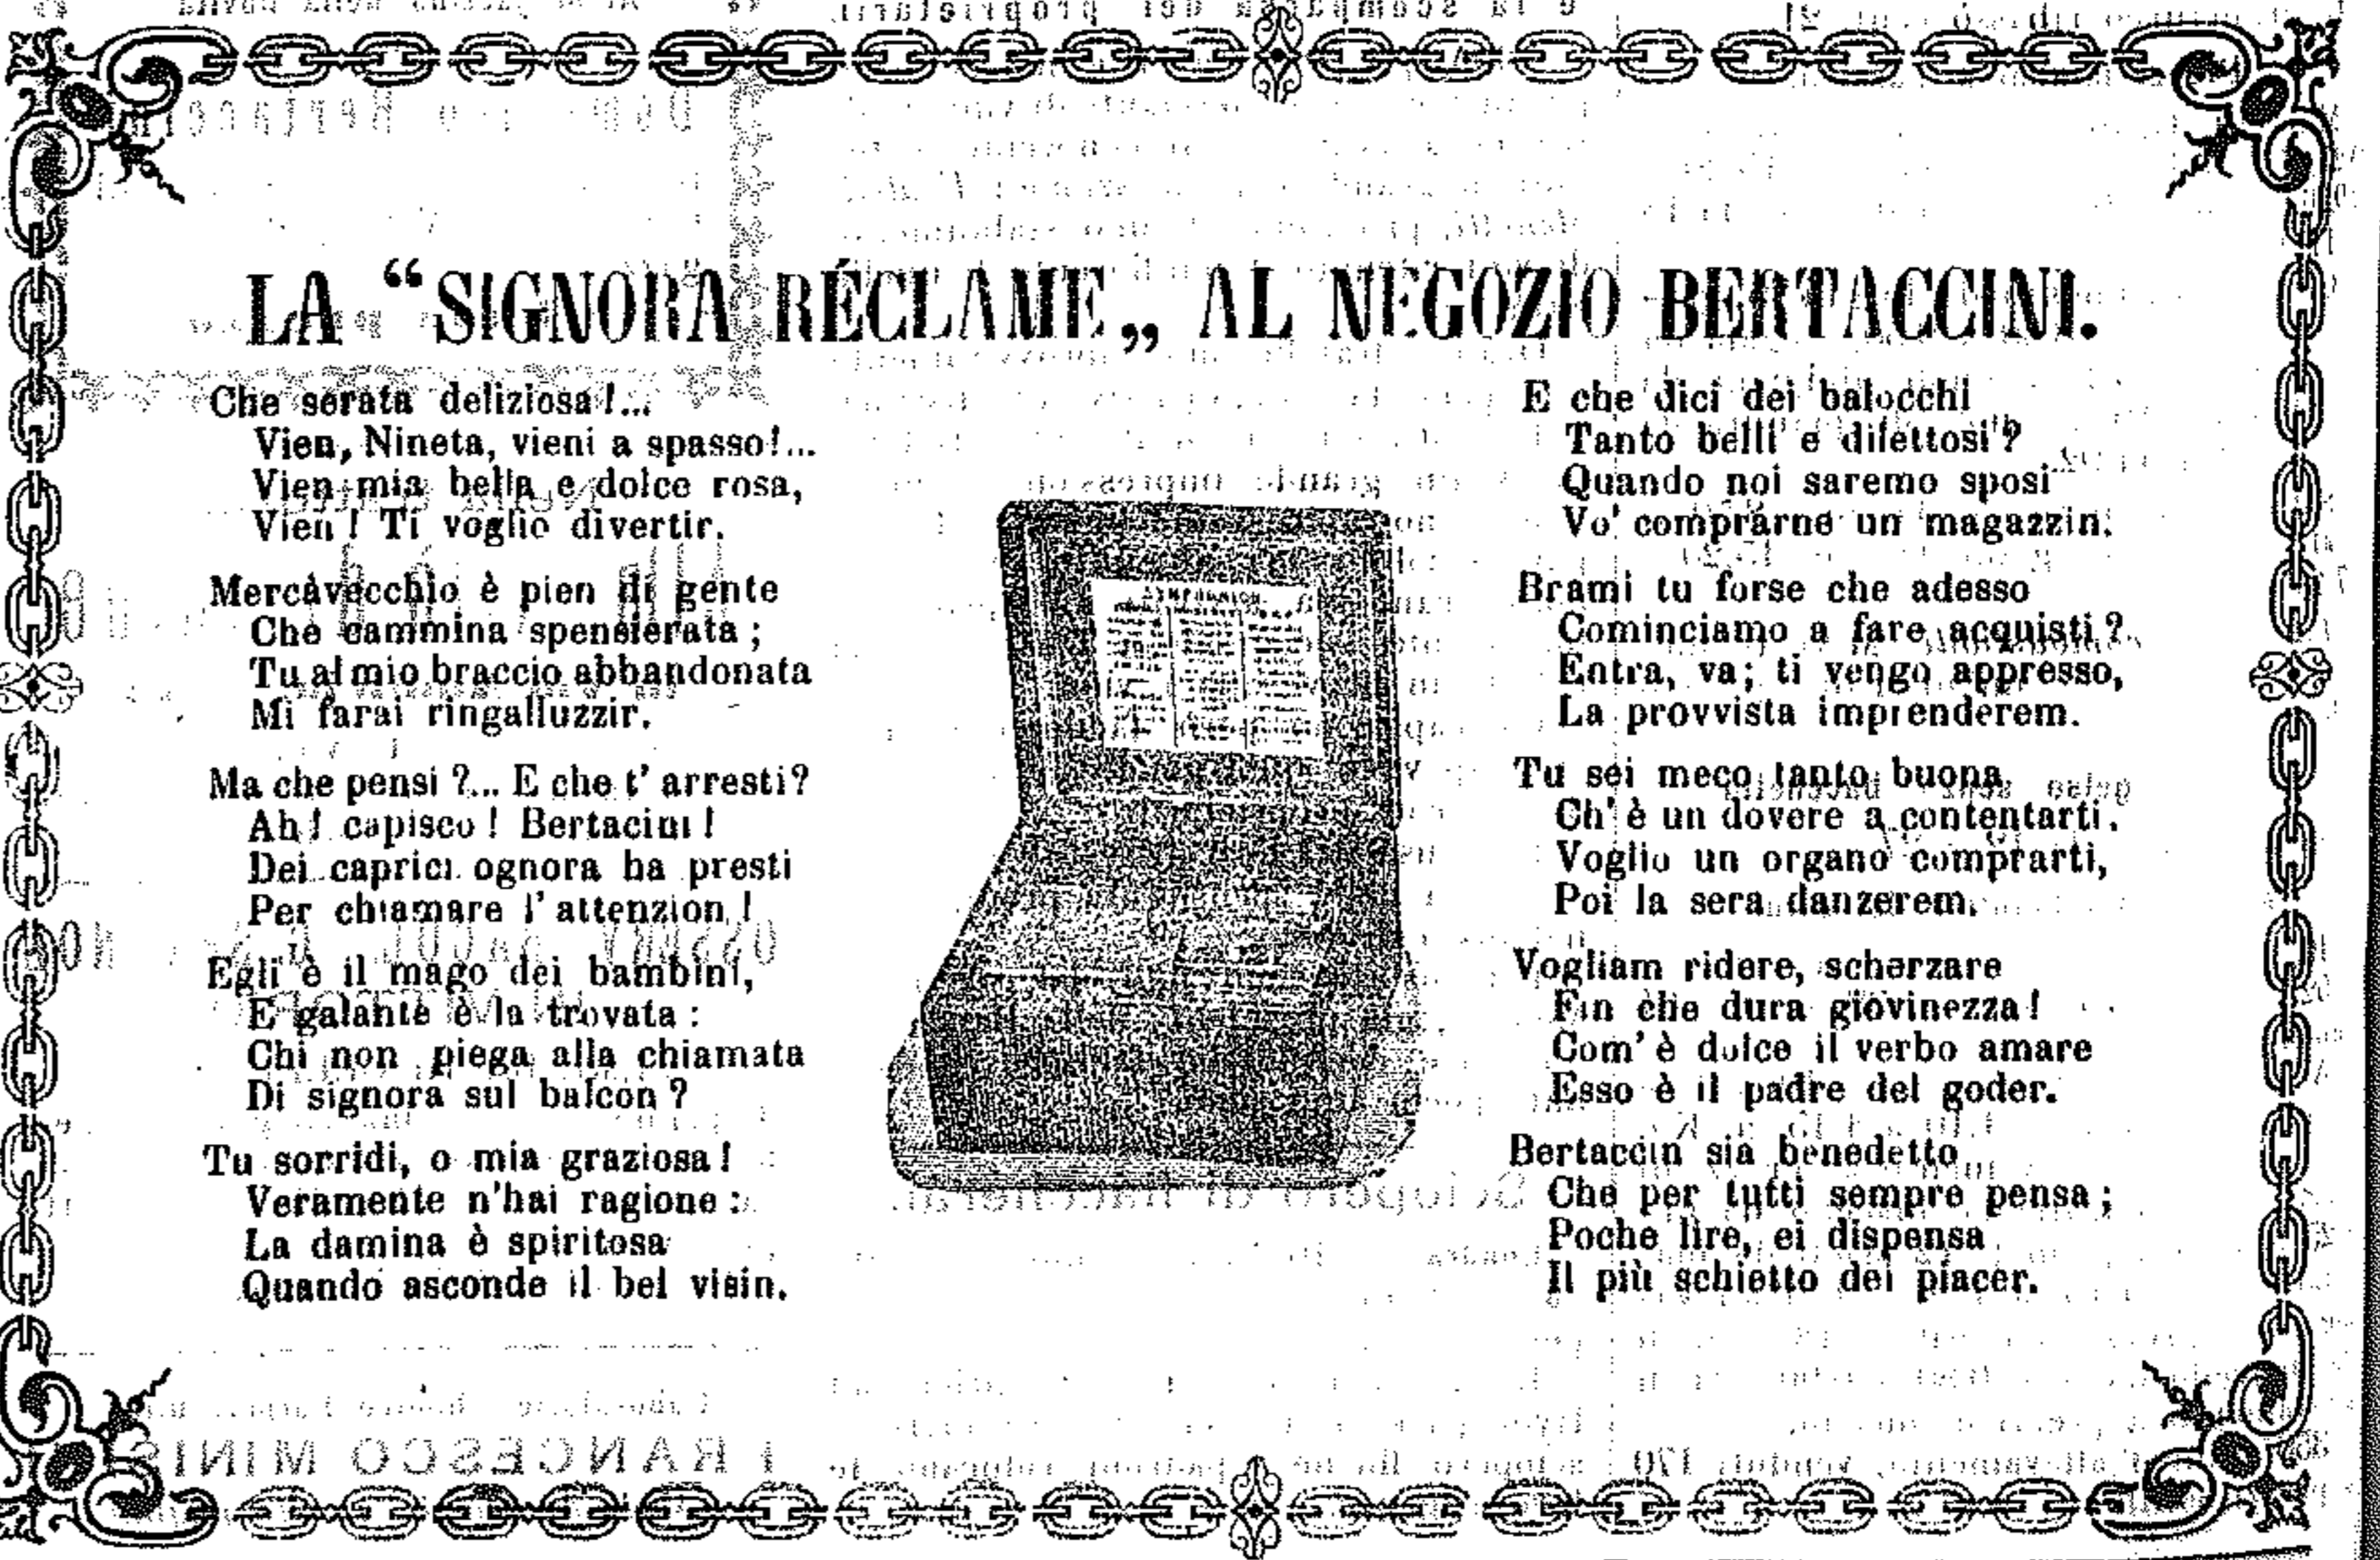 LA “SIGNORA RÉCLAME„ AL NEGOZIO BERTACCINI.
Che serata deliziosa!...
Vien, Nineta, vieni a spasso!...
Vien mia bella e dolce rosa,
Vien! Ti voglio divertir.
Mercavecchio è pien di gente
Che cammina spensierata;
Tu al mio braccio abbandonata
Mi farai ringalluzzir.
Ma che pensi?... E che t' arresti?
Ah! capisco! Bertacini!
Dei caprici ognora ha presti
Per chiamare l' attenzion!
Egli è il mago dei bambini,
E galante è la trovata:
Chi non piega alla chiamata
Di signora sul balcon?
Tu sorridi, o mia graziosa!
Veramente n'hai ragione:
La damina è spiritosa
Quando asconde il bel visin.
SYMPHONION.
E che dici dei balocchi
Tanto belli e dilettosi?
Quando noi saremo sposi
Vo' comprarne un magazzin.
Brami tu forse che adesso
Cominciamo a fare acquisti?
Entra, va; ti vengo appresso,
La provvista imprenderem.
Tu sei meco tanto buona
Ch' è un dovere a contentarti.
Voglio un organo comprarti,
Poi la sera danzerem.
Vogliam ridere, scherzare
Fin che dura giovinezza!
Com' è dolce il verbo amare
Esso è il padre del goder.
Bertaccin sia benedetto
Che per tutti sempre pensa;
Poche lire, ei dispensa
Il più schietto dei piacer.